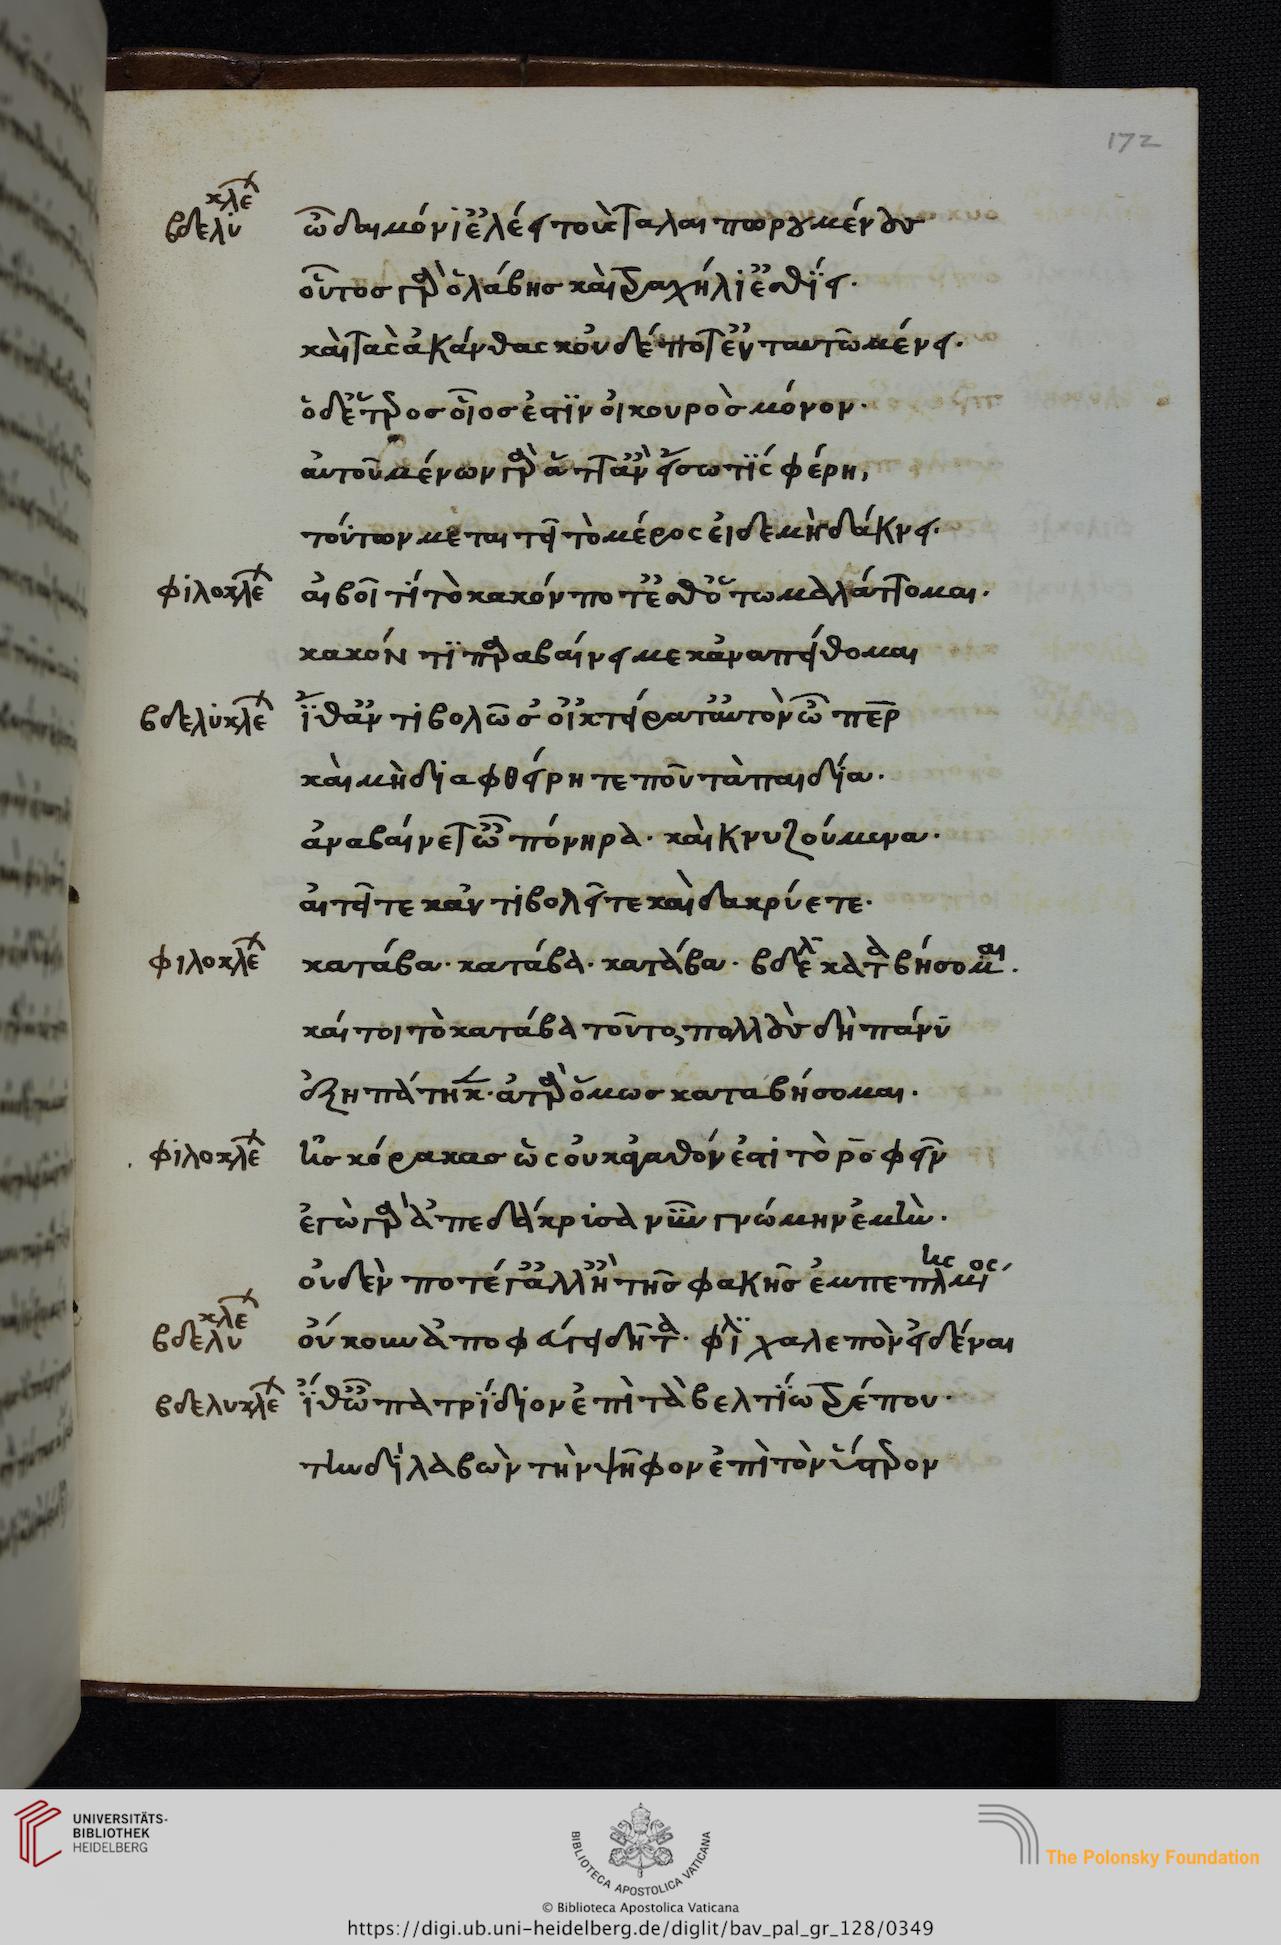 172
βδελυκλέ ὦ δαιμόνι ἐλέει τοὺς ταλαιπωρουμένους
οὗτος γὰρ ὁ λάβης καὶ τραχήλι ἐσθίει.
καὶ τὰς ἀκάνθας κοὐδέποτ ἐν ταυτῶ μένει.
ὁ δ ἕτερος οἷός ἐστϊν οἰκουρὸς μόνον.
ἀυτοῦ μένων γὰρ ἅττ ἂν εἴσω τίς φέρη,
τούτων μεταιτεῖ τὸ μέρος εἰ δε μὴ δάκνει.
φιλοκλέ αἰβοῖ τί τὸ κακόν ποτ ἔσθ ὅτω μαλάττομαι.
κακόν τϊ περαβαίνει με κἀναπείθομαι
βδελυκλέ ἴθ ἀντιβολῶ σ οἰκτείρατ αὐτὸν ὦ περ
καὶ μὴ διαφθείρητε ποῦ τὰ παιδία.
ἀναβαίνετ ὦ πόνηρα. καὶ κνυζούμενα.
αἰτεῖτε κἀντιβολεῖτε καὶ δακρύετε.
φιλοκλέ κατάβα. κατάβα. κατάβα. βδελ καταβήσομαι.
καίτοι τὸ κατάβα τοῦτο, πολλοὺς δὴ πάνυ
ἐξηπάτηκ. ἀτὰρ ὅμως καταβήσομαι.
φιλοκλέ ἐις κόρακας ὡς οὐκ ἀγαθόν ἐστι τὸ ροφεῖν
ἐγὼ γὰρ ἀπεδάκρισα νῦν γνώμην ἐμὴν.
οὐδὲν ποτέ γ ἀλλ ἢ τῆς φακῆς ἐμπεπλημένος
βδελυκλε οὔκουν ἀποφάγει δῆτα. φιλ χαλεπὸν εἰδέναι
βδελυκλέ ἴθ ὦ πατρίδιον ἐπὶ τὰ βελτίω τρέπου.
τηνδὶ λαβὼν τὴν ψῆφον ἐπὶ τὸν ὕστερον
UNIVERSITÄTS-
BIBLIOTHEK
HEIDELBERG
BIBLIOTECA APOSTOLICA VATICANA
The Polonsky Foundation
© Biblioteca Apostolica Vaticana
https://digi.ub.uni-heidelberg.de/diglit/bav_pal_gr_128/0349